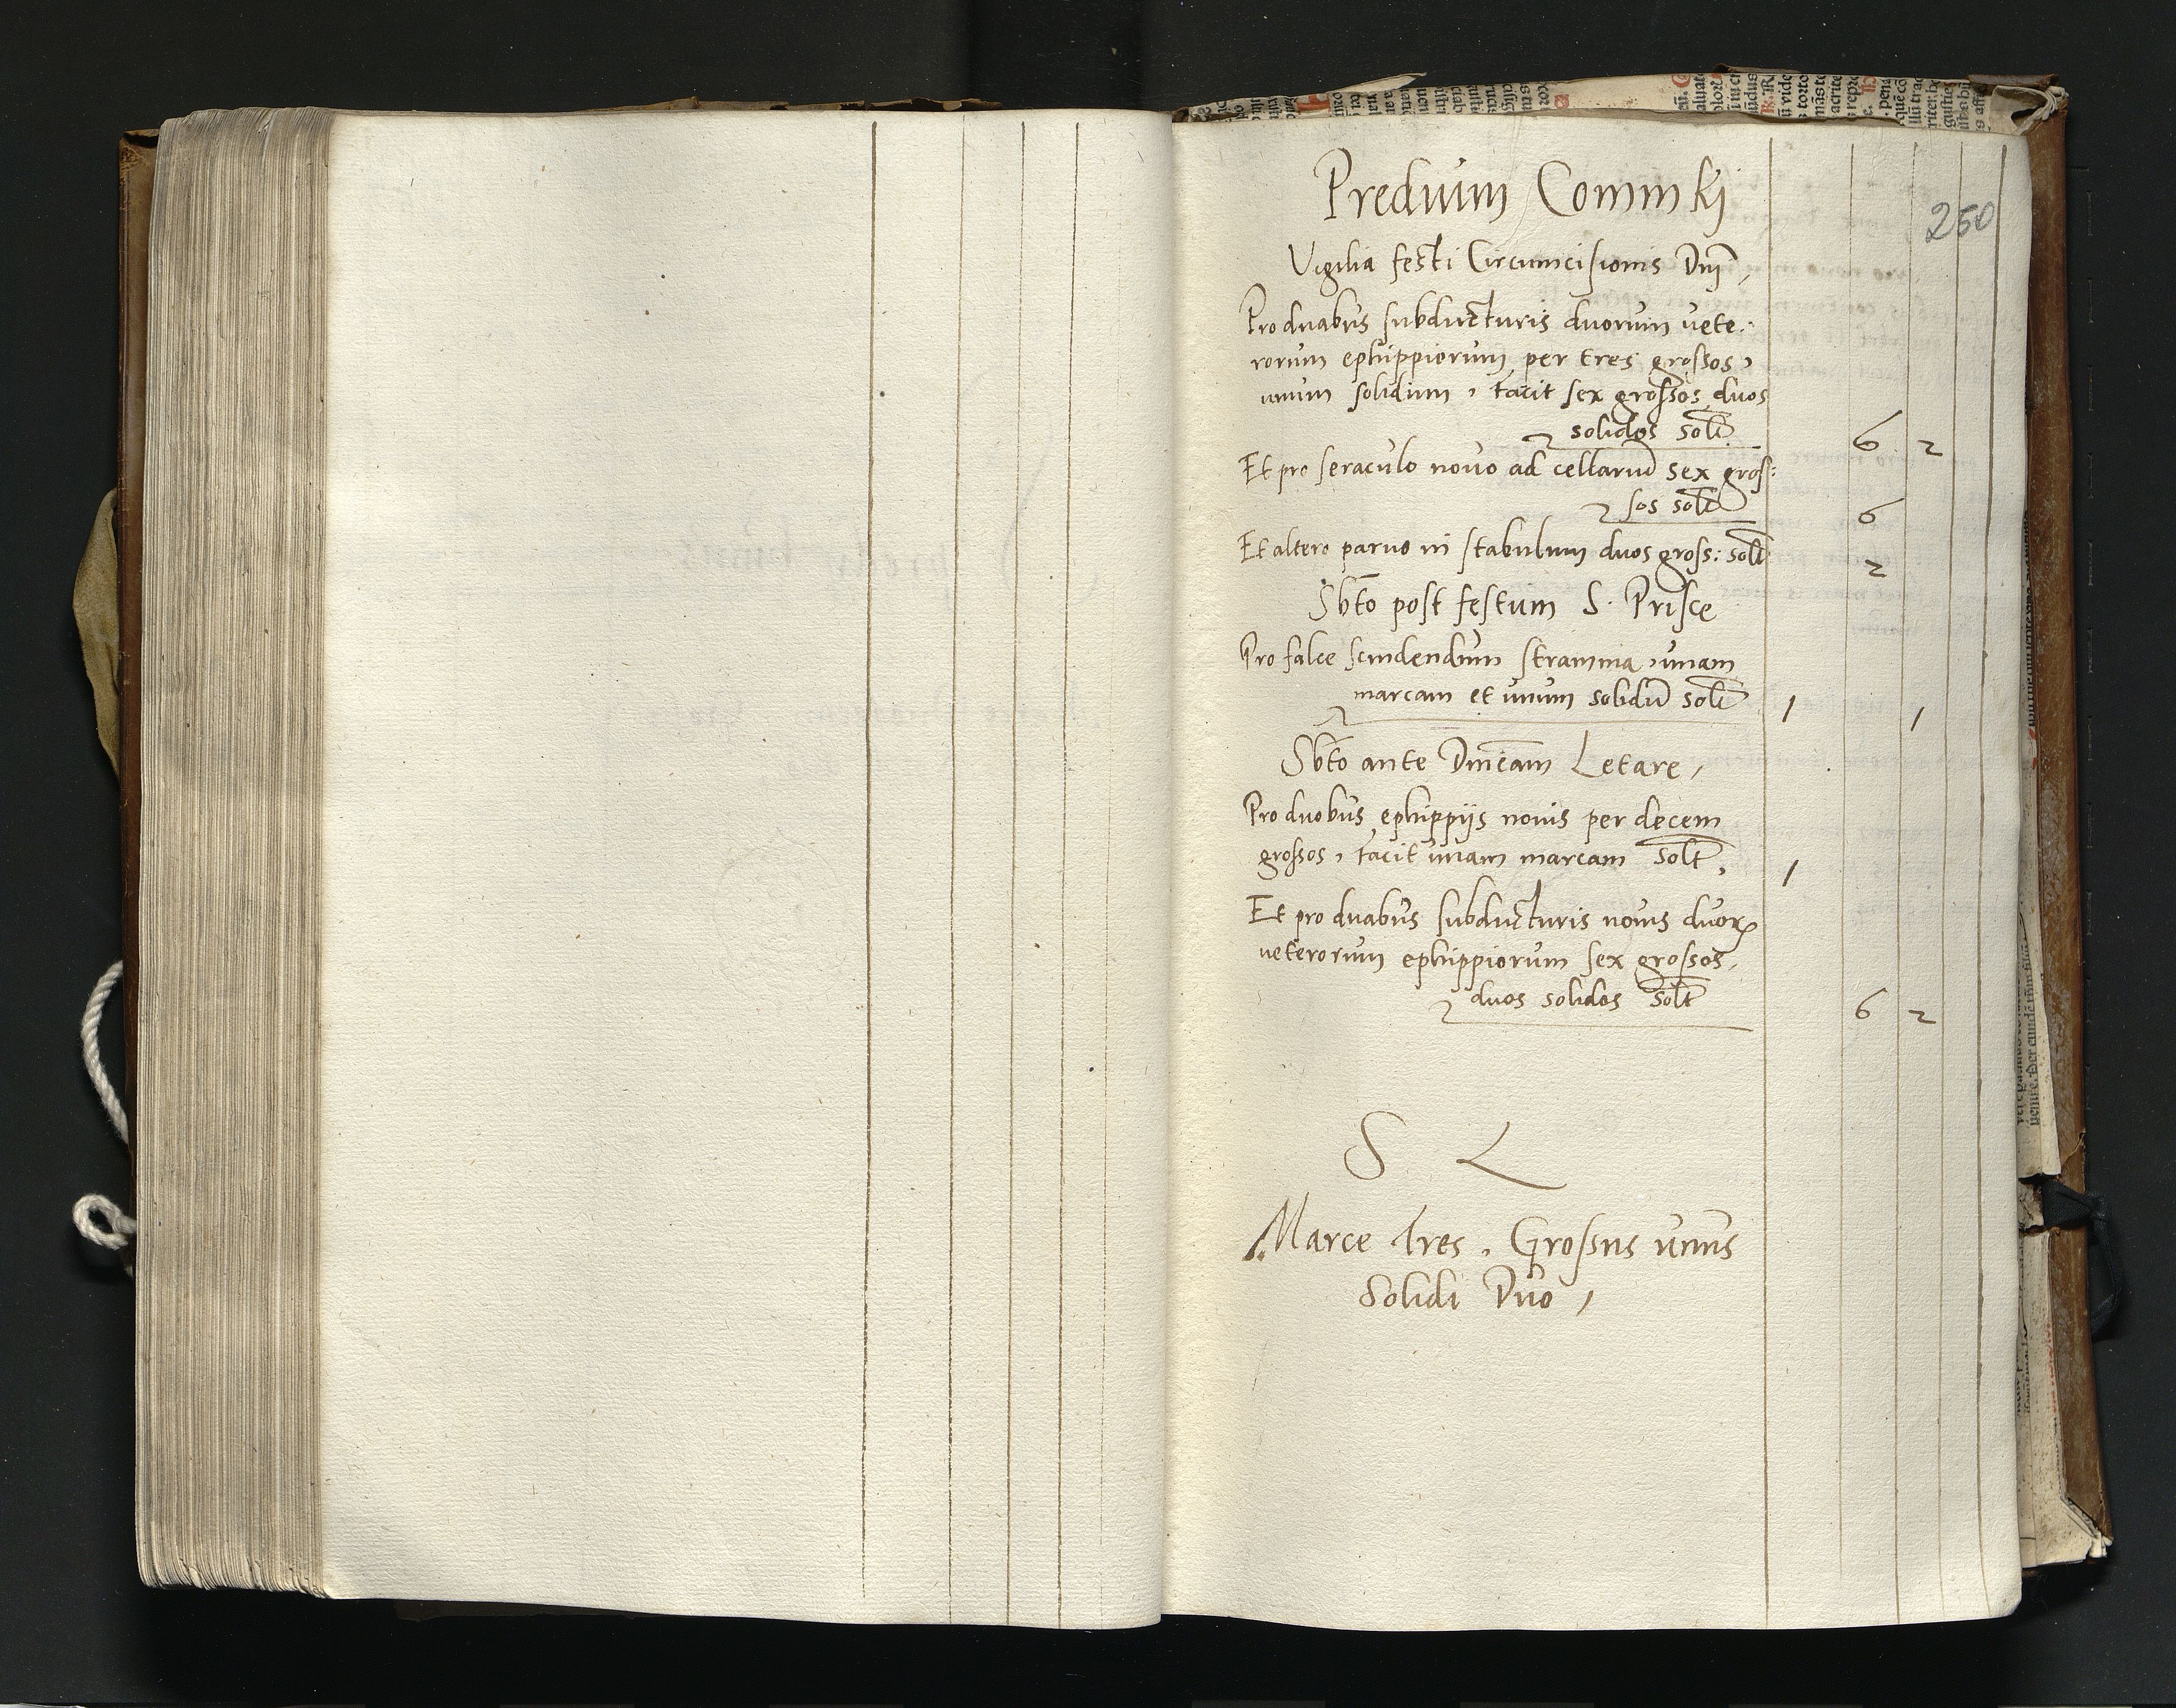 Predium Commskj
250
Vigilia festi Circumcisionis Dnj,
Pro duabus subducturis duorum vete:
rorum ephippiorum per tres grossos,
unum solidum, facit sex grossos duos
solidos solt 6 2
Et pro seraculo novo ad cellariu sex gros:
sos solt 6
Et altero parvo in stabulum duos gross: solt 2
Sbto post festum S. Prisce
Pro falce scindendum stramina, unam
marcam et unum solidu solt 1 1
Sbto ante Dnicam Letare,
Pro duobus ephippijs novis per decem
grossos, facit unam marcam solt, 1
Et pro duabus subducturis novis duor
veterorum ephippiorum sex grossos,
duos solidos solt 6 2
S L
Marce tres, Grossus unus
Solidi Duo,